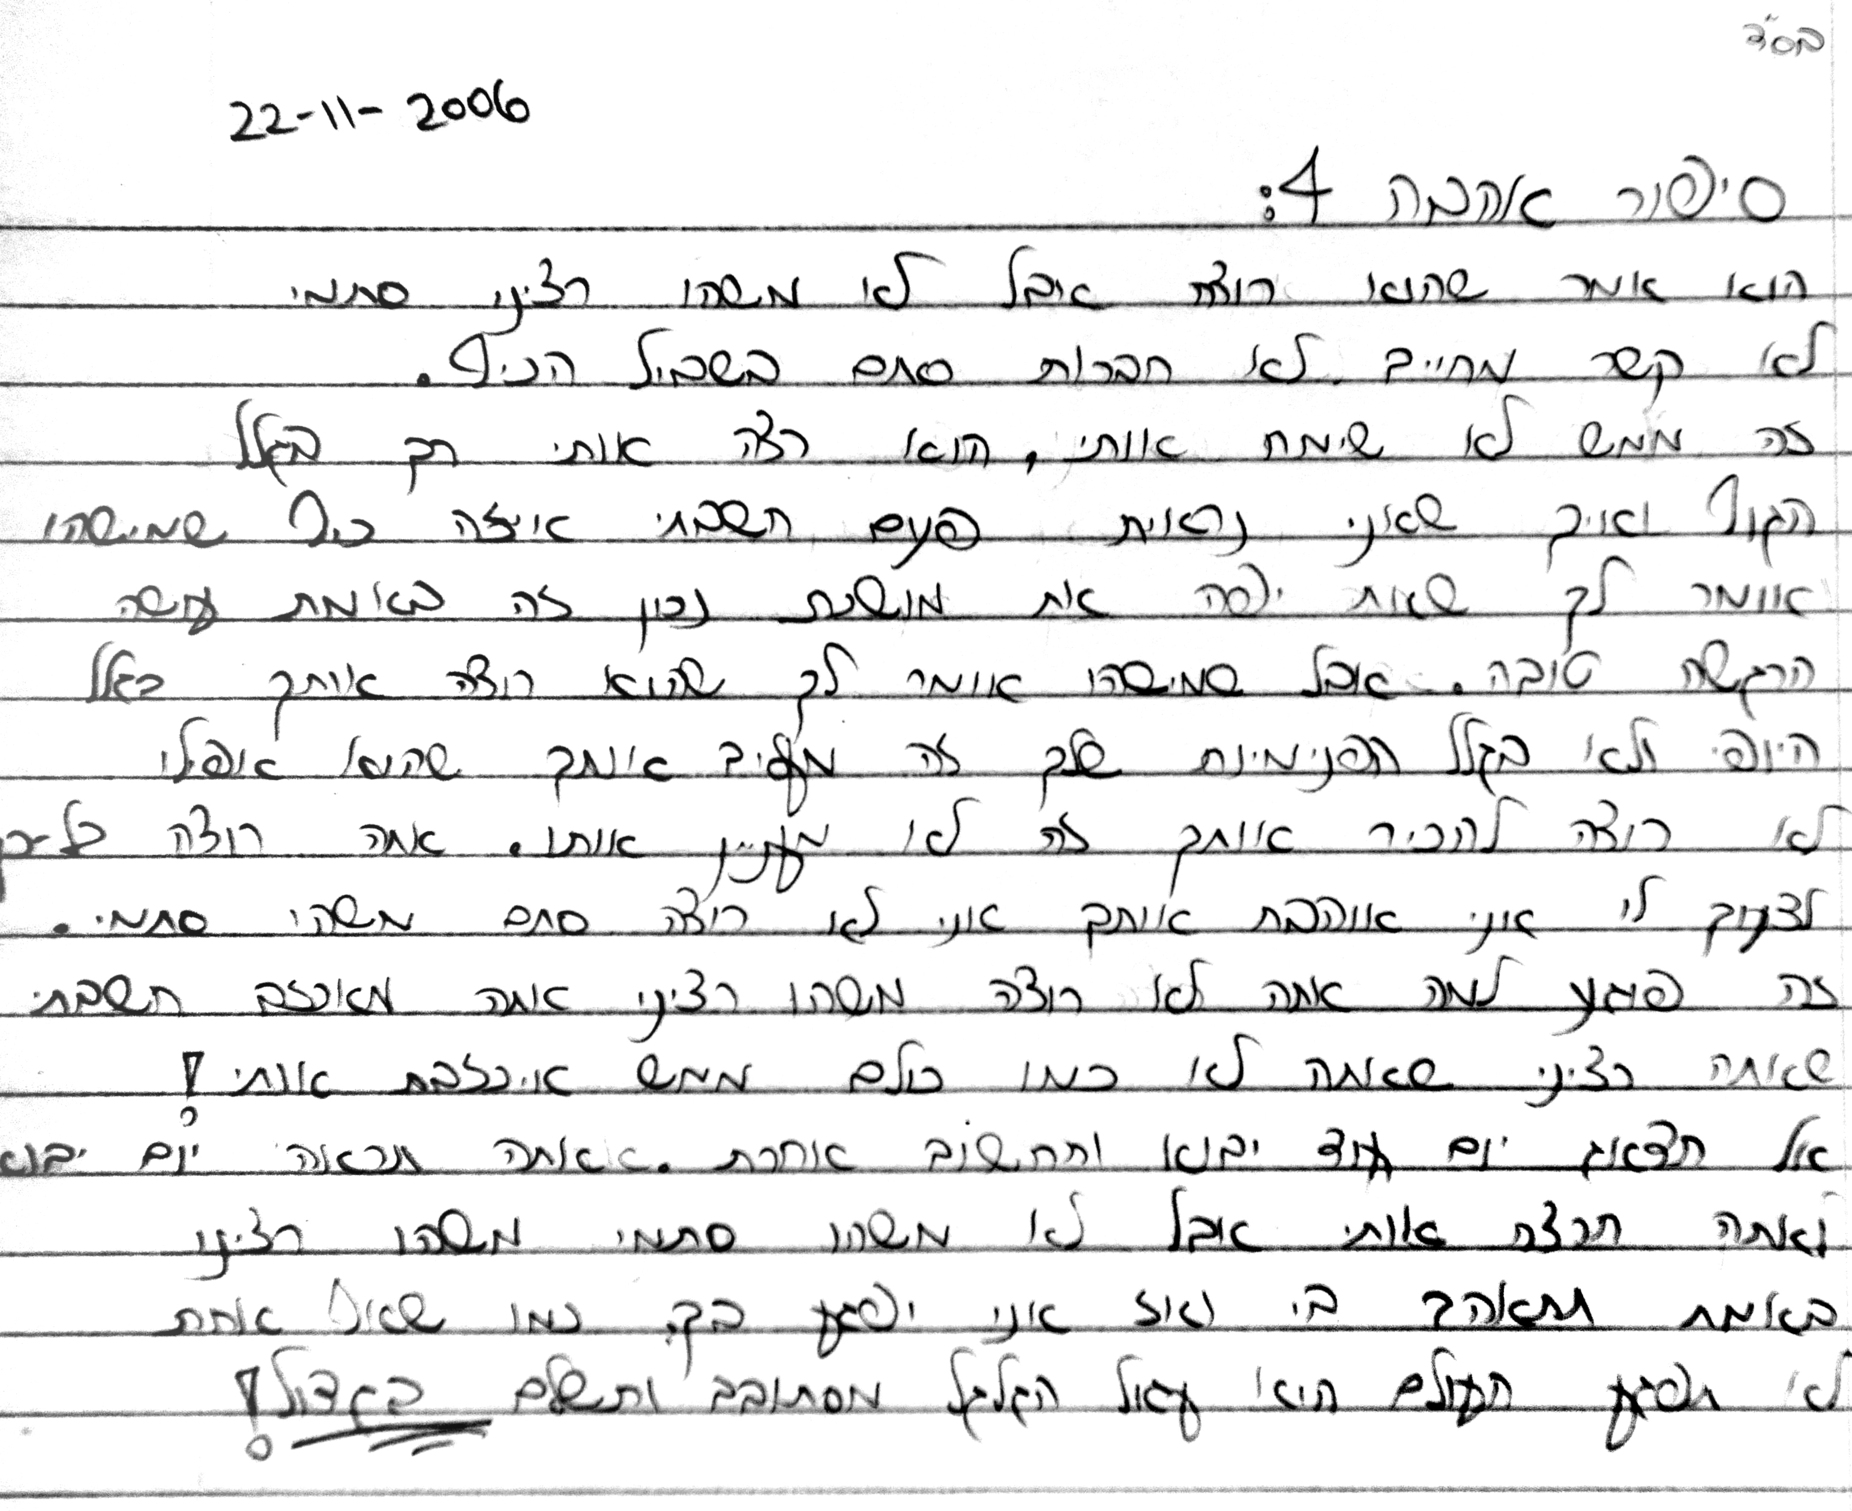 בס"ד
22-11-2006
סיפור אהבה 4:
הוא אמר שהוא רוצה אבל לא משהו רציני סתמי
לא קשר מחייב. לא חברות סתם בשביל הכיף.
זה ממש לא שימח אותי, הוא רצה אותי רק בגלל
הגוף ואיך שאני נראית פעם חשבתי איזה כיף שמישהו
אומר לך שאת יפה את מושכת נכון זה באמת עושה
הרגשה טובה. אבל שמישהו אומר לך שהוא רוצה אותך בגלל
היופי ולא בגלל הפנימיות שלך זה מעליב אותך שהוא אפילו
לא רוצה להכיר אותך זה לא מעניין אותו. אתה רוצה כל-כך
לצעוק לו אני אוהבת אותך אני לא רוצה סתם משהו סתמי.
זה פוגע למה אתה לא רוצה משהו רציני אתה מאכזב חשבתי
שאתה רציני שאתה לא כמו כולם ממש איכזבת אותי!
אל תדאג יום עוד יבוא ותחשוב אחרת. אתה תראה יום יבוא
ואתה תרצה אותי אבל לא משהו סתמי משהו רציני
באמת תתאהב בי ואז אני יפגע בך, כמו שאף אחת
לא תפגע העולם הוא עגול הגלגל מסתובב ותשלם בגדול!